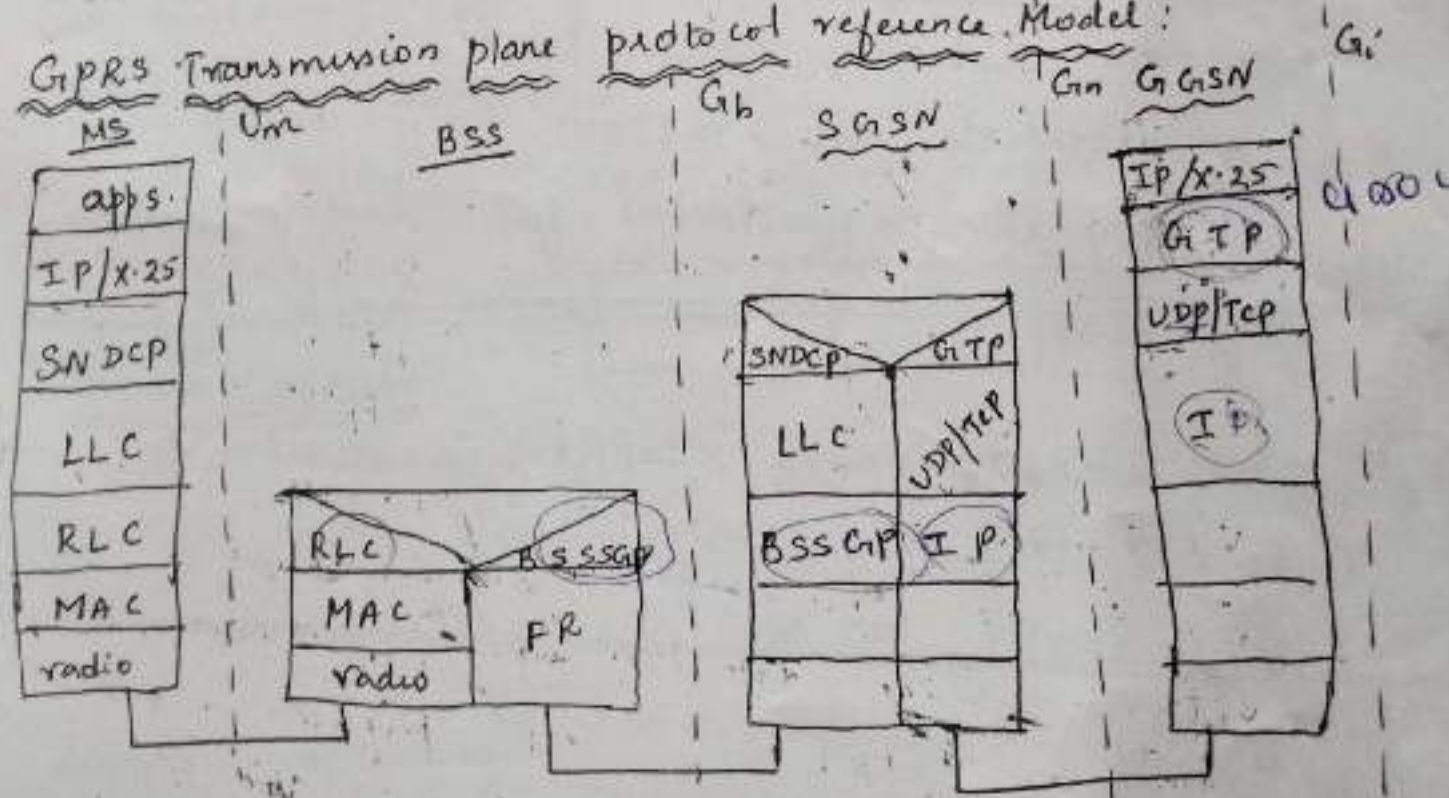 GPRS Transmission plane protocol reference Model:
MS
Um
BSS
Gb
SGSN
Gn
GGSN
Gi
apps.
IP/X.25
SNDCP
LLC
RLC
MAC
radio
RLC
BSSSGP
MAC
FR
radio
SNDCP
GTP
LLC
UDP/TCP
BSSGP
IP
IP/X.25
GTP
UDP/TCP
IP